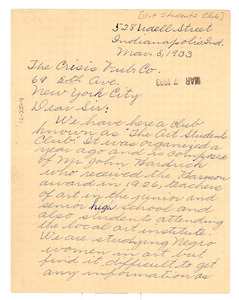 [Art Students Club]
528 Udell Street
Indianapolis, Ind.
Mar. 5, 1933
MAR 7 1933
The Crisis Pub. Co.
69 5th Ave.
New York City
Dear Sir:
We have here a club
known as "The Art Students
Club". It was organized a
year ago and is composed
of Mr. John Hardrick
who received the Harmon
award in 1926, teachers
of art in the junior and
senior high school and
also students attending
the local art institute.
We are studying Negro
women in art but
find it difficult to get
any information as